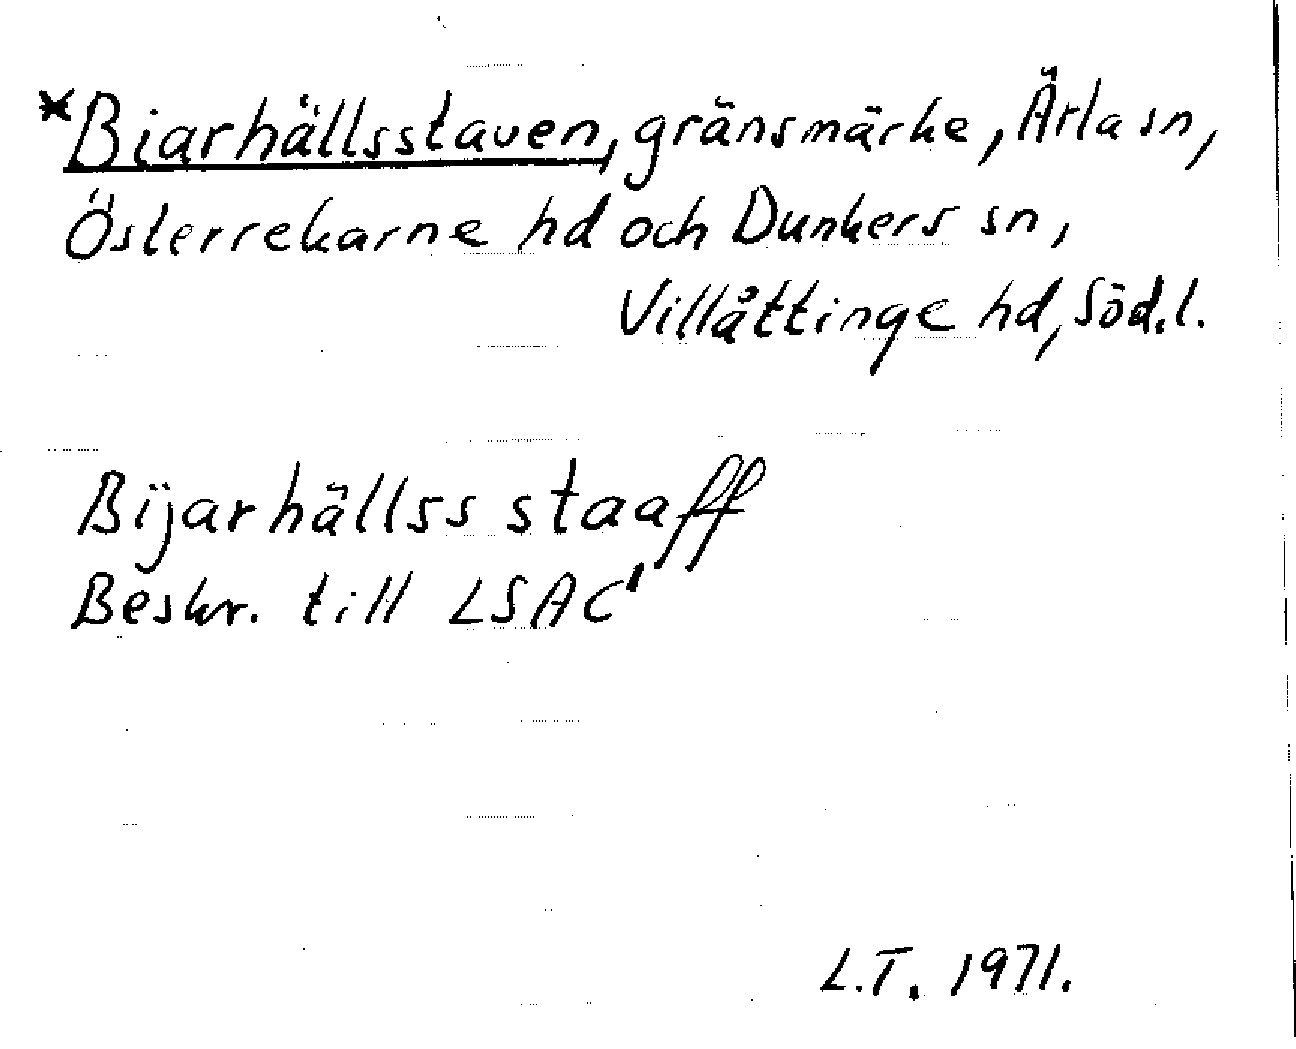 *Biarhällsstaven, gränsmärke, Ärla sn,
Österrekarne hd och Dunkers sn,
Villåttinge hd, Söd.l.
Bijarhällss staaff
Beskr. till LSAC¹
L.T. 1971.